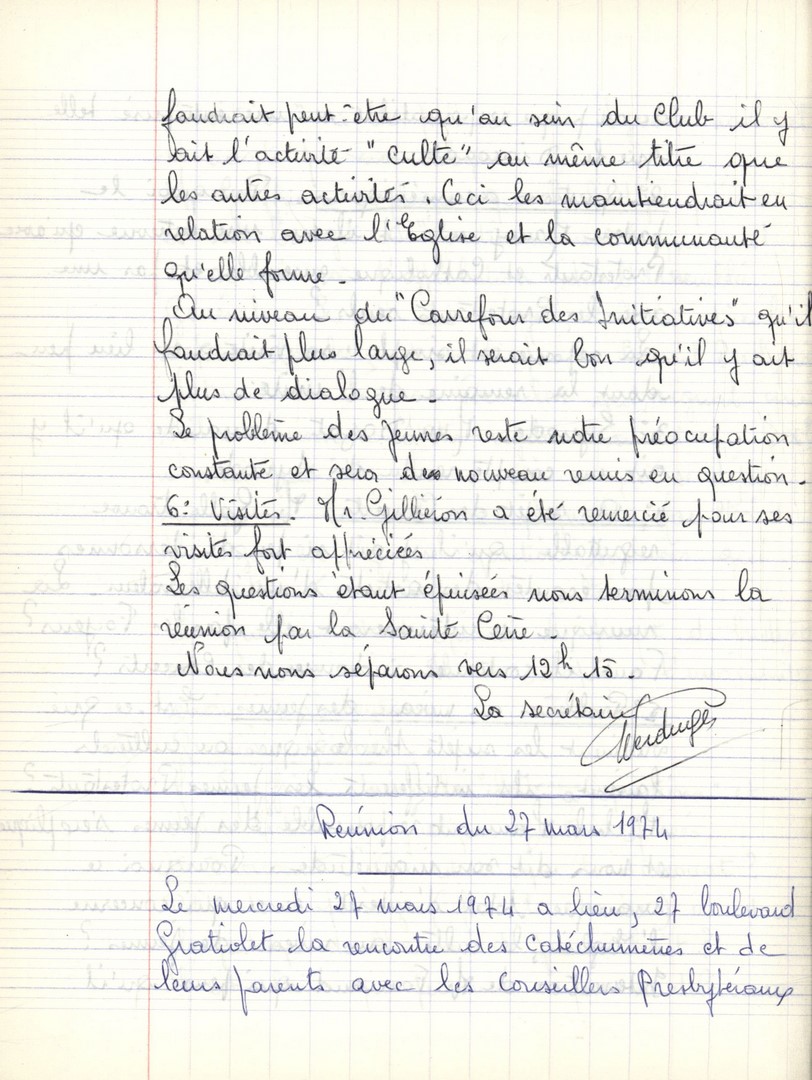 faudrait peut-être qu'au sein du Club il y
ait l'activité "culte" au même titre que
les autres activités. Ceci les maintiendrait en
relation avec l'Eglise et la communauté
qu'elle forme.
Au niveau du "Carrefour des Initiatives" qu'il
faudrait plus large, il serait bon qu'il y ait
plus de dialogue.
Le problème des jeunes reste notre préocupation
constante et sera de nouveau remis en question.
6: Visites. Mr. Gilliéron a été remercié pour ses
visites fort appréciées
Les questions étant épuisées nous terminons la
réunion par la Sainte Cène.
Nous nous séparons vers 12h 15.
La secrétaire
Reúnion du 27 mars 1974
Le mercredi 27 mars 1974 a lieu, 27 boulevard
Gratiolet la rencontre des catéchumènes et de
leurs parents avec les Conseillers Presbytéraux